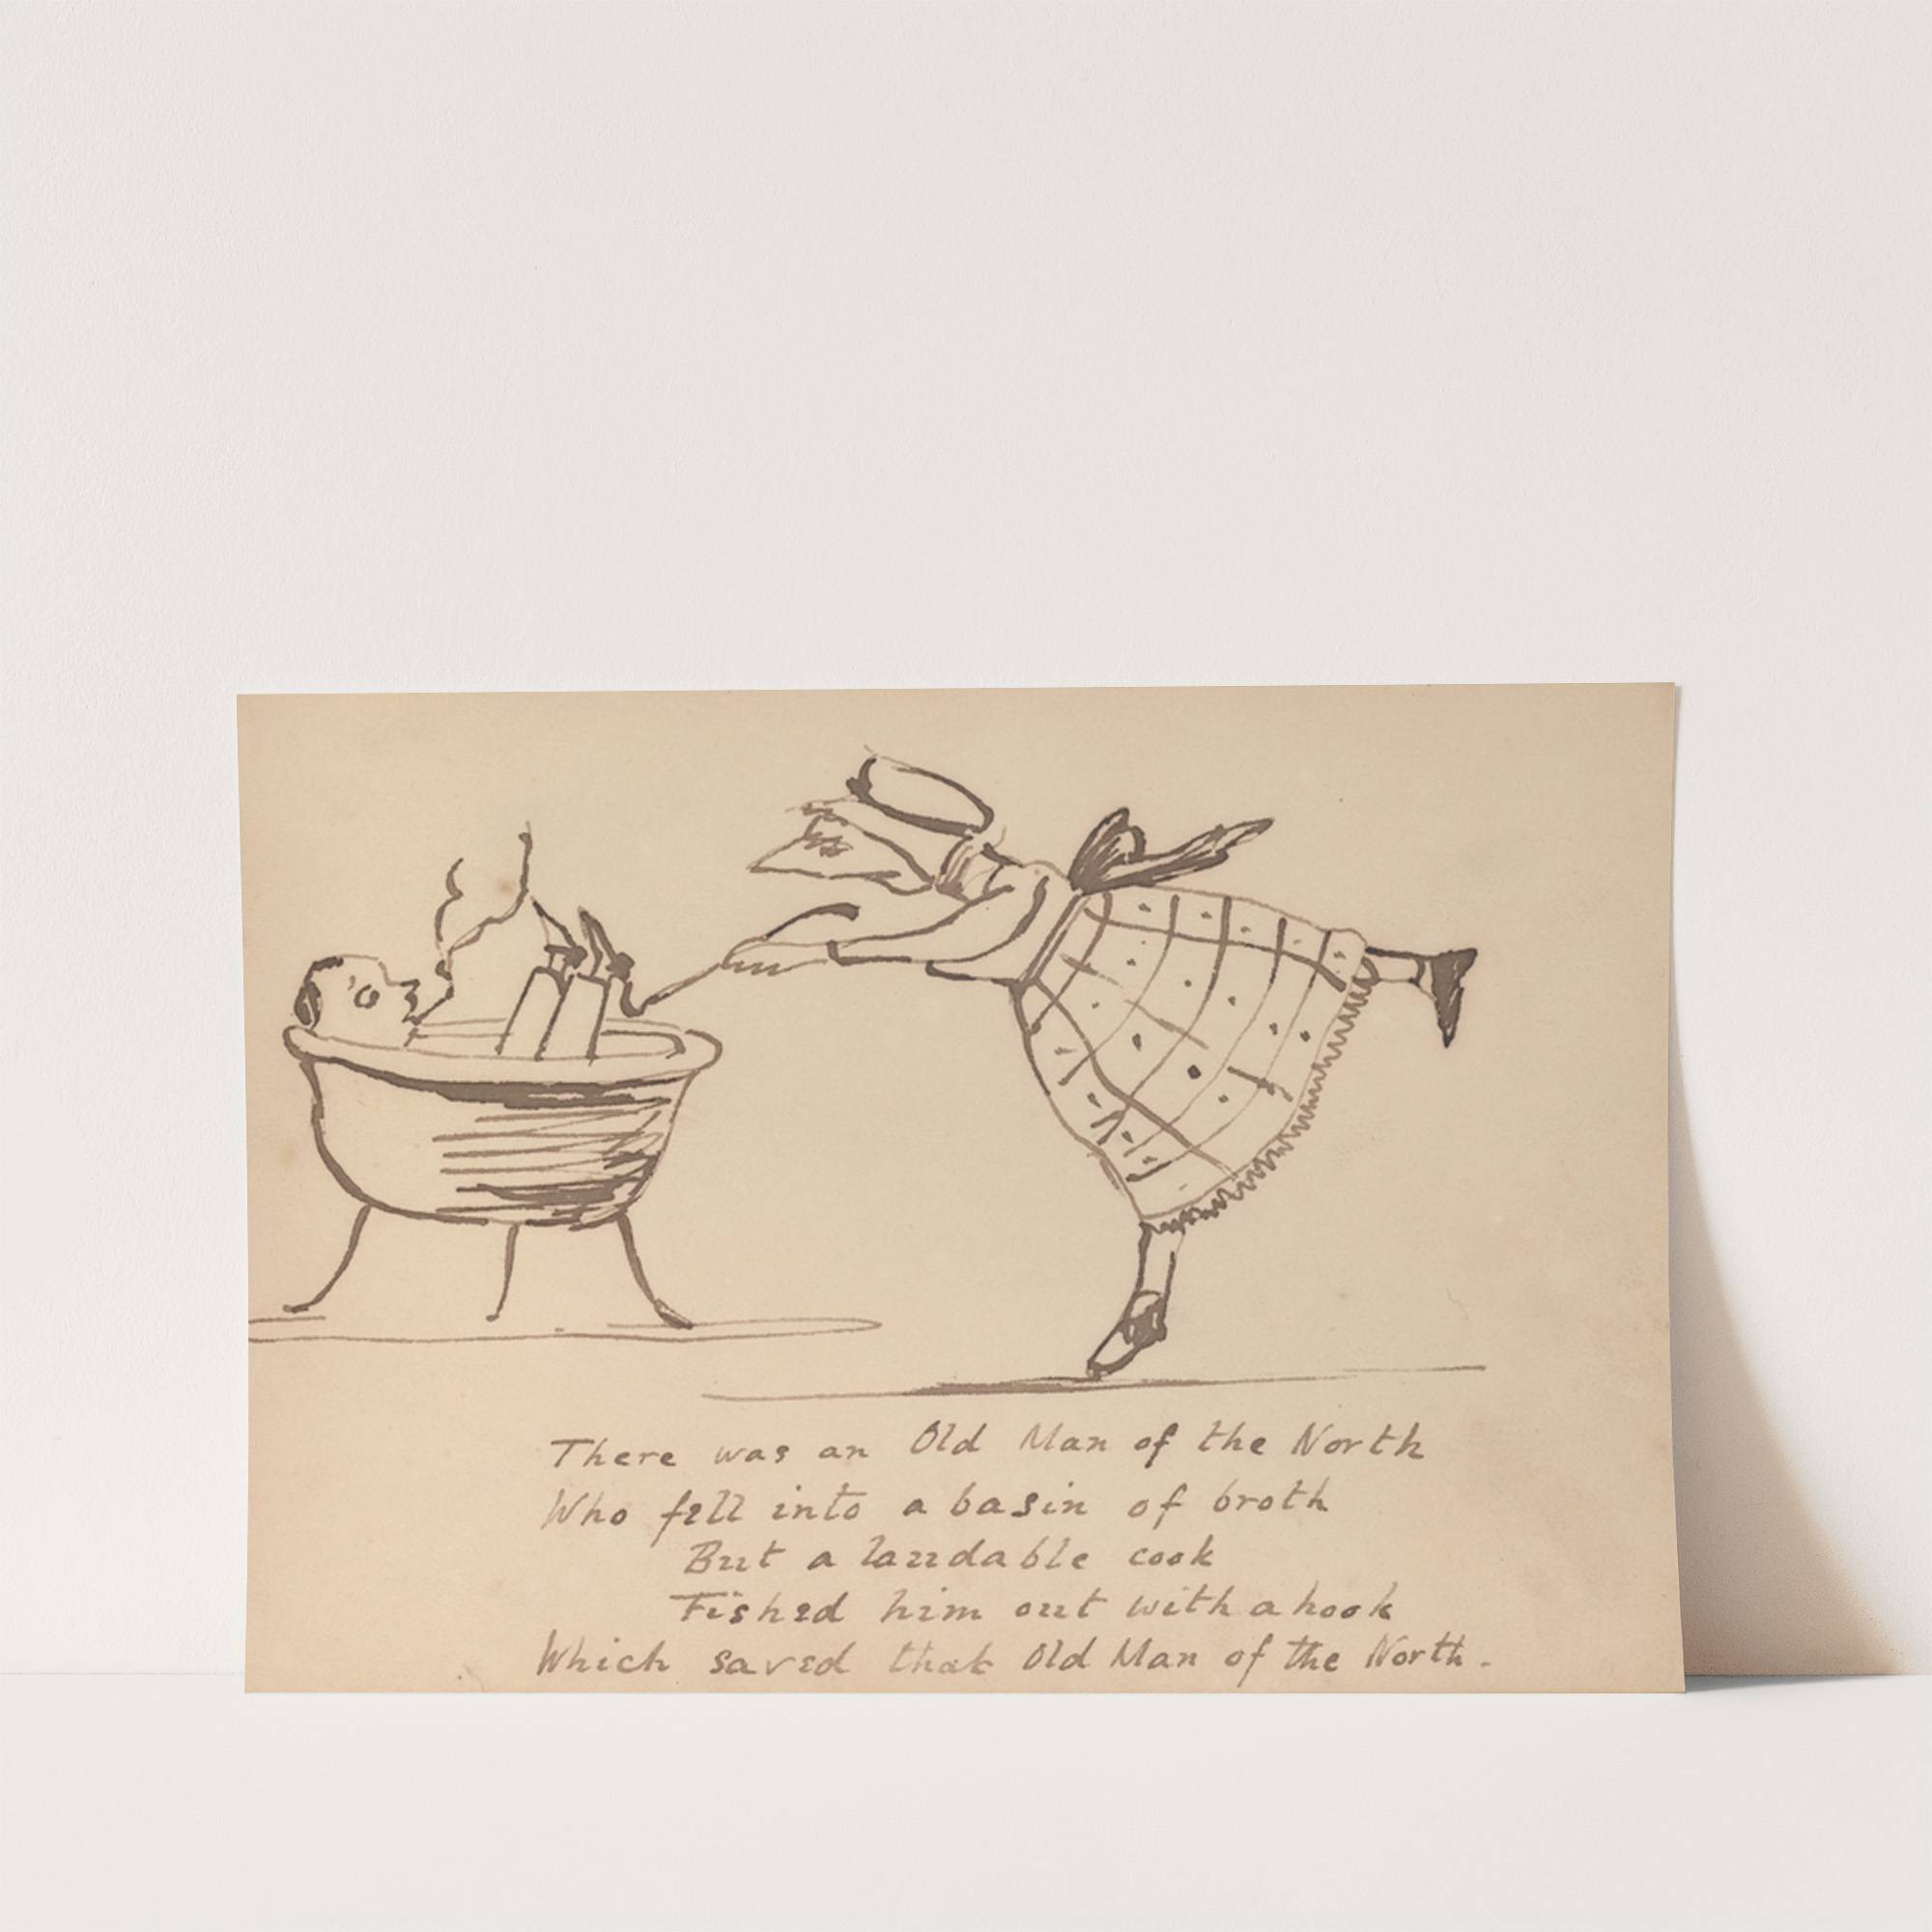 There was an Old Man of the North
Who fell into a basin of broth
But a laudable cook
Fished him out with a hook
Which saved that Old Man of the North.